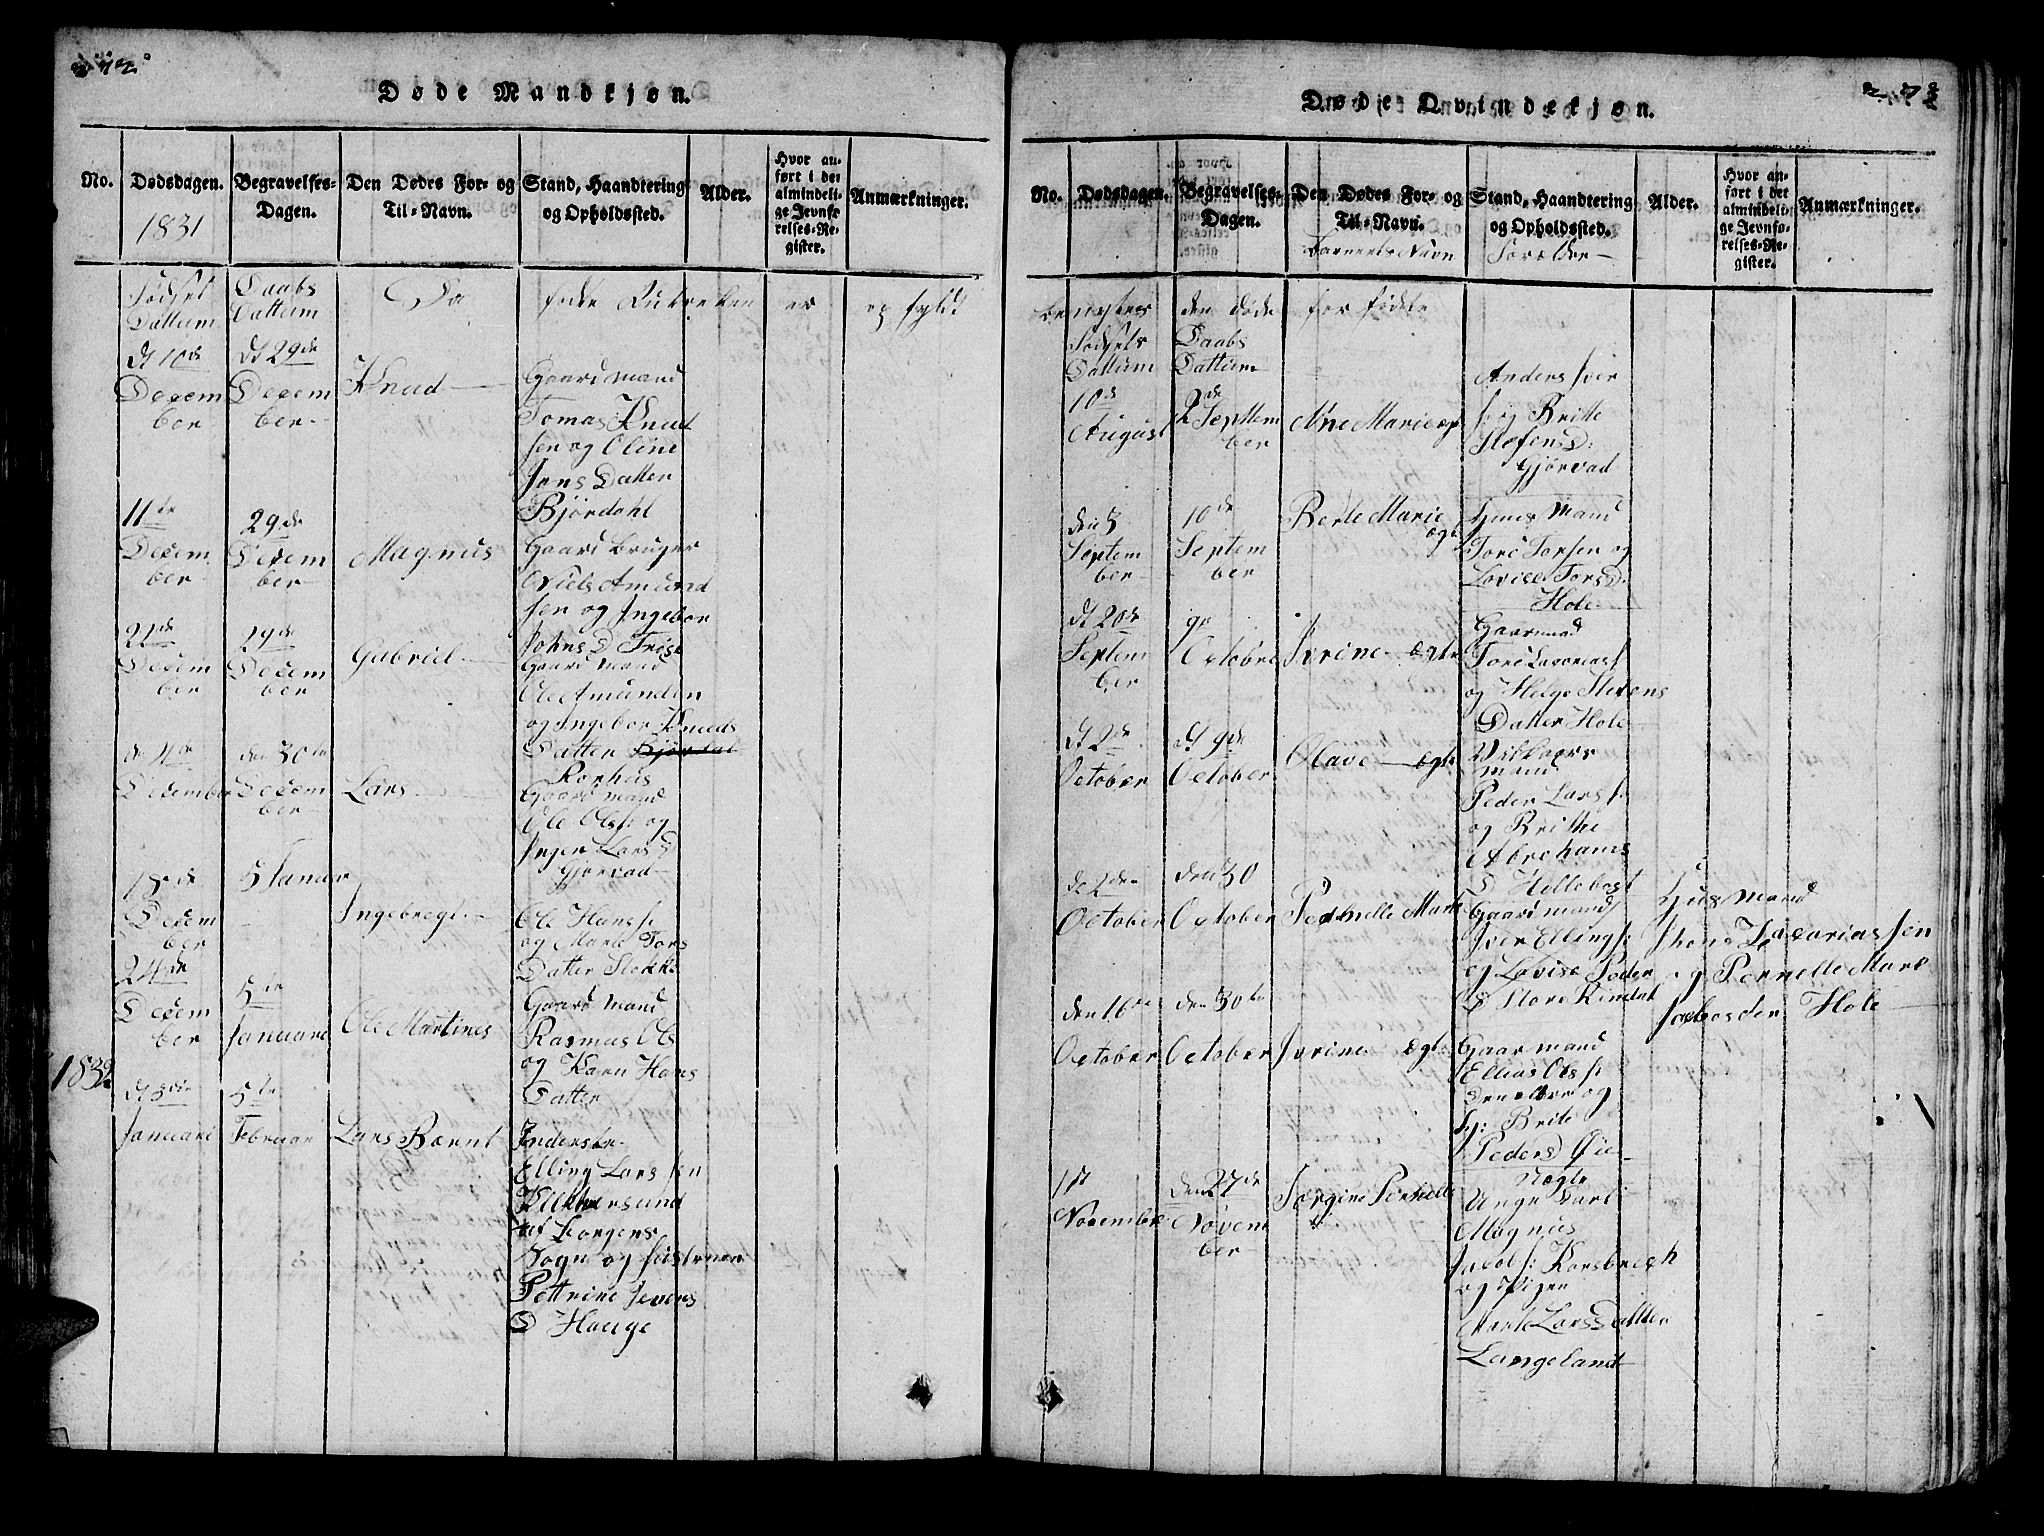 272
Døde Mandkjøn.
No.
Dødsdagen.
1831
Begravelses-
Dagen.
Den Dødes For- og
Til-Navn.
Stand, Haandtering
og Opholdssted.
Alder.
Hvor an-
ført i det
almindeli-
ge Jevnfø-
relses-Re-
gister.
Anmærkninger.
Fødsel
Dattum
Daabs
Dattum
Da føde Rubreken er opfyldt
dt 10de
Decem
ber
dt 29de
Decem
ber
Knud
Gaardmand
Tomas Knud
sen og Oline
Jons Datter
Bjørdahl
11te
Decem
ber
29de
Decem
ber
Magnus
Gaard bruger
Niels Amund
sen og Ingebor
Johns D
21de
Decem
ber
29de
Decem
ber
Gabriel
Gaard mand
Ole Amunden
og Ingebor Knuds
Datter Bjørdal
Ronhus
de 4de
December
den 30te
Decem
ber
Lars
Gaard mand
Ole Ols: og
Inger Lars D
Gjørvad
18de
Decem
ber
5 Januar
Ingebregt
Ole Hans s:
og Marie Tors
Datter Slokke
24de
Decem
ber
5te
Januare
Ole Martines
Gaard mand
Rasmus Ols
og Karn Hans
Datter
1832
dt 3die
Januari
5te
Februar
Lars Bærnt
Inderster
Elling Lars sen
af Borgens
Sogn og
Pettrine Jevers
D Hauge
273
Døde Qvindekjøn.
No.
Dødsdagen.
Begravelses-
Dagen.
Den Dødes For- og
Til-Navn.
Barnets Navn
Stand, Haandtering
og Opholdssted.
Forældre
Alder.
Hvor an-
ført i det
almindeli-
ge Jevnfø-
relses-Re-
gister.
Anmærkninger.
benyttes den døde for fødte
Fødsels
Dattum
Daabs
Dattum
10de
August
2de
Septtem
ber
Ane Marie ægt
Anders Iver
s: og Britte
Stefens D:
Gjørvad
den 3
Septem
ber
10de
Septem
ber
Berte Marie
ægt
Huus Mand
Tore Torsen og
Lovise Tors D:
Hole
dt 20de
Septem
ber
9de
Octobre
Ivrine ægte
Gaarmand
Tore Lasarias s
og Helge Stevens
Datter Hole
dt 2de
October
dt 9de
October
Olave ægte
mand
Peder Lars s:
og Brithe
Abrehams
D Hellebost
de 2den
October
den 30
October
Pednelle Marte
Gaard mand
Iver Elling s:
og Lovise Peder
D Store Rindal
Huus mand
Jhone Zacarias sen
og Pernelle Mare
Jacobsder Hole
den 16de
October
den 30te
October
Ivrine Ægte
Gaar mand
Ellias Ols s:
den eldre og
h: Brite
Peders D Øie
1st
Novembre
den 27de
Novem
ber
Sørgine Pernelle
Uægte
Unge Karl
Magnus
Jacob s: Korsbrech
og Pigen
Marte Lars Datter
Langeland